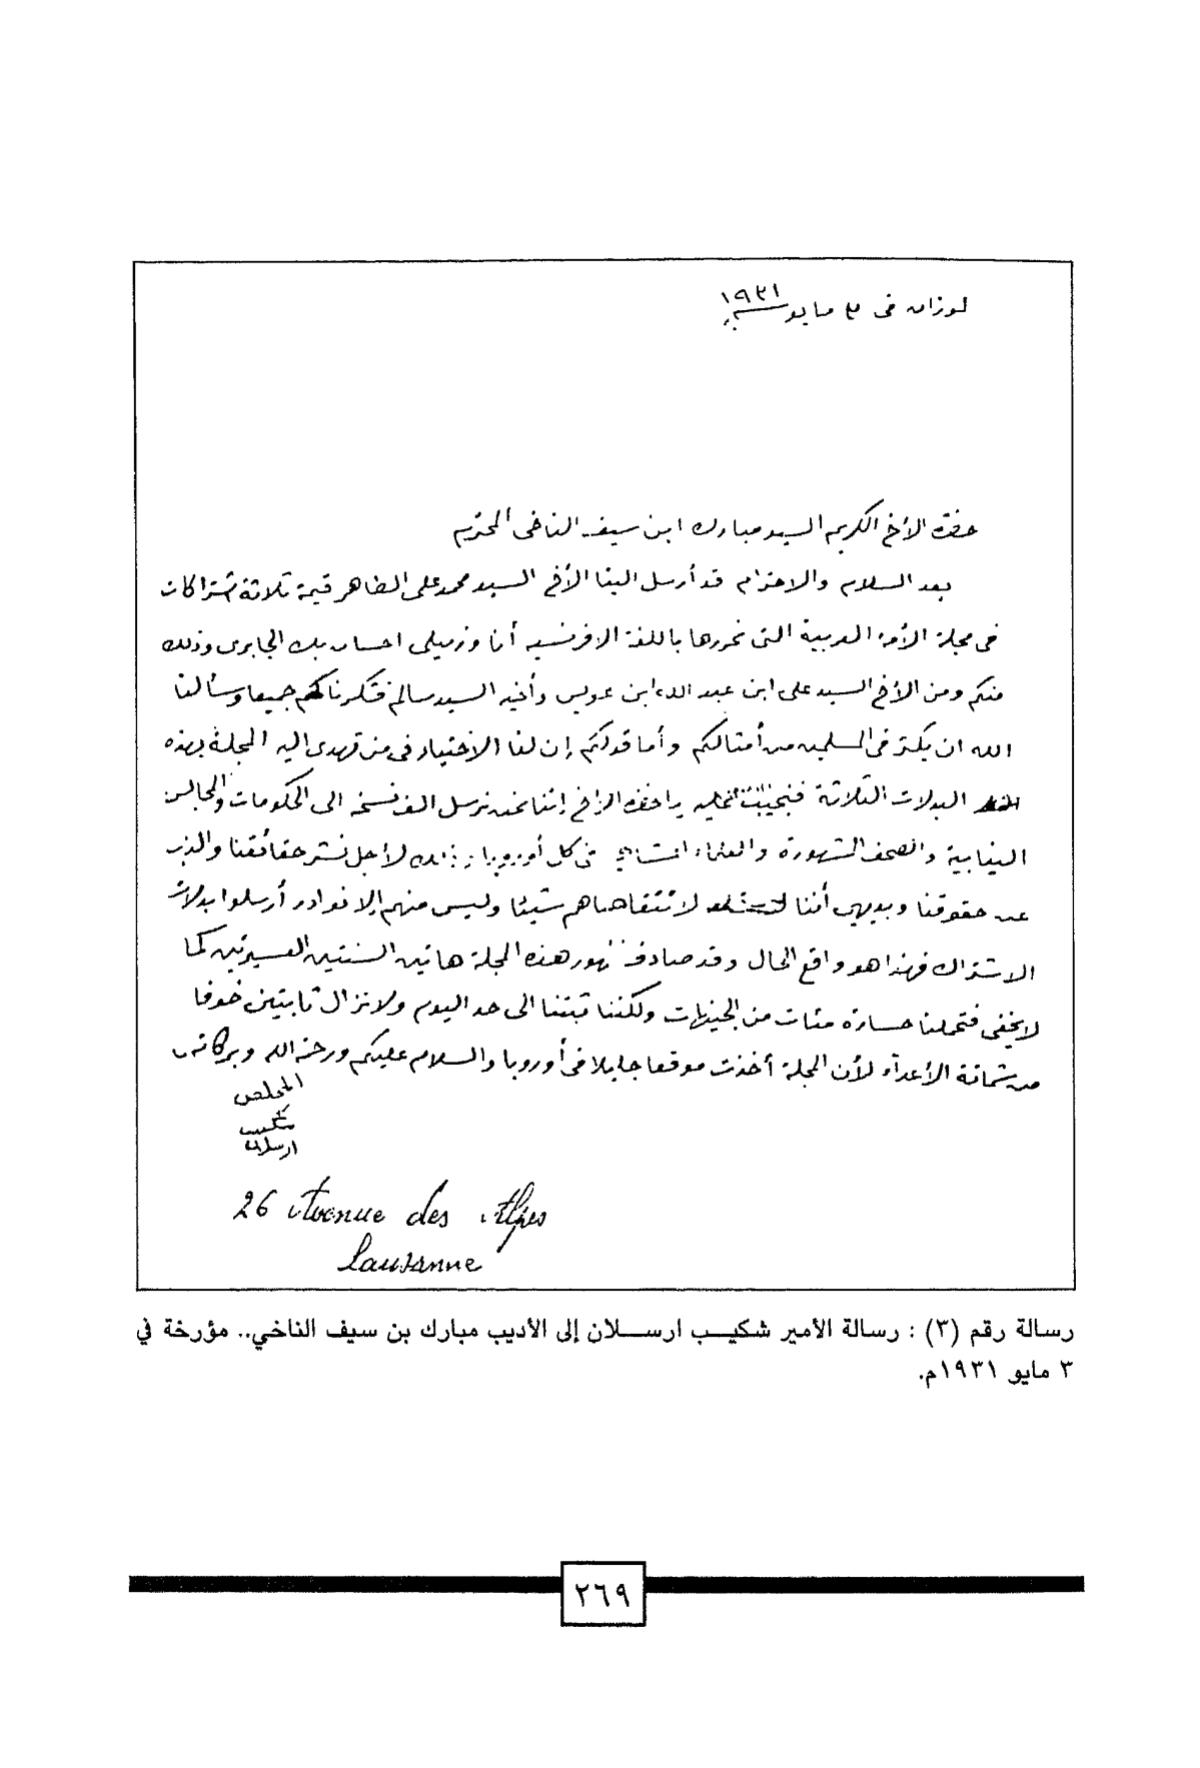 لوزان في ٣ مايو سنة ١٩٣١
حضرة الأخ الكريم السيد مبارك ابن سيف الناخى المحترم
بعد السلام والاحترام قد أرسل الينا الأخ السيد محمد على الطاهر قيمة ثلاثة اشتراكات
فى مجلة الأمة العربية التى نحررها باللغة الافرنسية أنا وزميلى احسان بك الجابرى وذلك
منكم ومن الأخ السيد على ابن عبد الله ابن عويس وأخيه السيد سالم فشكرناكم جميعا وسألنا
الله ان يكثر فى المسلمين من أمثالكم وأما قولكم إن لنا الاختيار فى من تهدى اليه المجلة بهذه
البدلات الثلاثة فنجيب عليه يا حضرة الأخ إننا نحن نرسل ألف نسخة الى الحكومات والمجالس
النيابية والصحف الشهورة والعلماء فى كل أوروبا وذلك لأجل نشر حقائقنا والذب
عن حقوقنا وبديهى أننا لا نتقاضاهم شيئا وليس منهم إلا نوادر أرسلوا بدلات
الاشتراك فهذا هو واقع الحال وقد صادف ظهور هذه المجلة هاتين السنتين العسيرتين كما
لا يخفى فتحملنا خسارة مئات من الجنيهات ولكننا ثبتنا الى حد اليوم ولا نزال ثابتين خوفا
من شماتة الأعداء لأن المجلة أخذت موقعا جليلا فى أوروبا والسلام عليكم ورحمة الله وبركاته
المخلص
شكيب
ارسلان
26 Avenue des Alpes
Lausanne
رسالة رقم (٣) : رسالة الأمير شكيب ارسلان إلى الأديب مبارك بن سيف الناخي.. مؤرخة في
٣ مايو ١٩٣١م.
٢٦٩